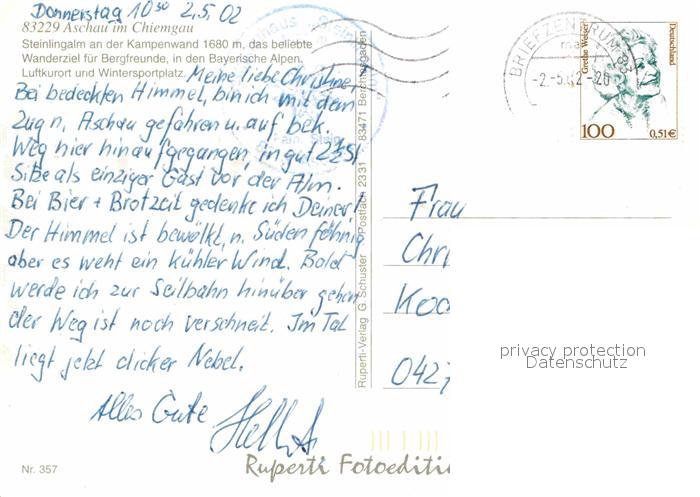 Donnerstag 10 30 2.5.02
83229 Aschau im Chiemgau
Steinlingalm an der Kampenwand 1680 m, das beliebte
Wanderziel für Bergfreunde, in den Bayerischen Alpen.
Luftkurort und Wintersportplatz.
Meine liebe Christine,
Bei bedecktem Himmel, bin ich mit dem
Zug n. Aschau gefahren u. auf bek.
Weg hier hinaufgegangen, in gut 2½ St
Sitze als einziger Gast vor der Alm.
Bei Bier + Brotzeit gedenke ich Deiner!
Der Himmel ist bewölkt, n. Süden föhnig
aber es weht ein kühler Wind. Bald
werde ich zur Seilbahn hinüber gehen
der Weg ist noch verschneit. Im Tal
liegt jetzt dicker Nebel.
Alles Gute
Nr. 357
Ruperti Fotoediti
Ruperti-Verlag G. Schuster Postfach 2331 83471 Berchtesgaden
BRIEFZENTRUM
-2.-5.02-20
Grethe Weiser
Deutschland
100
0,51€
Frau
Chri
Koc
0427
privacy protection
Datenschutz